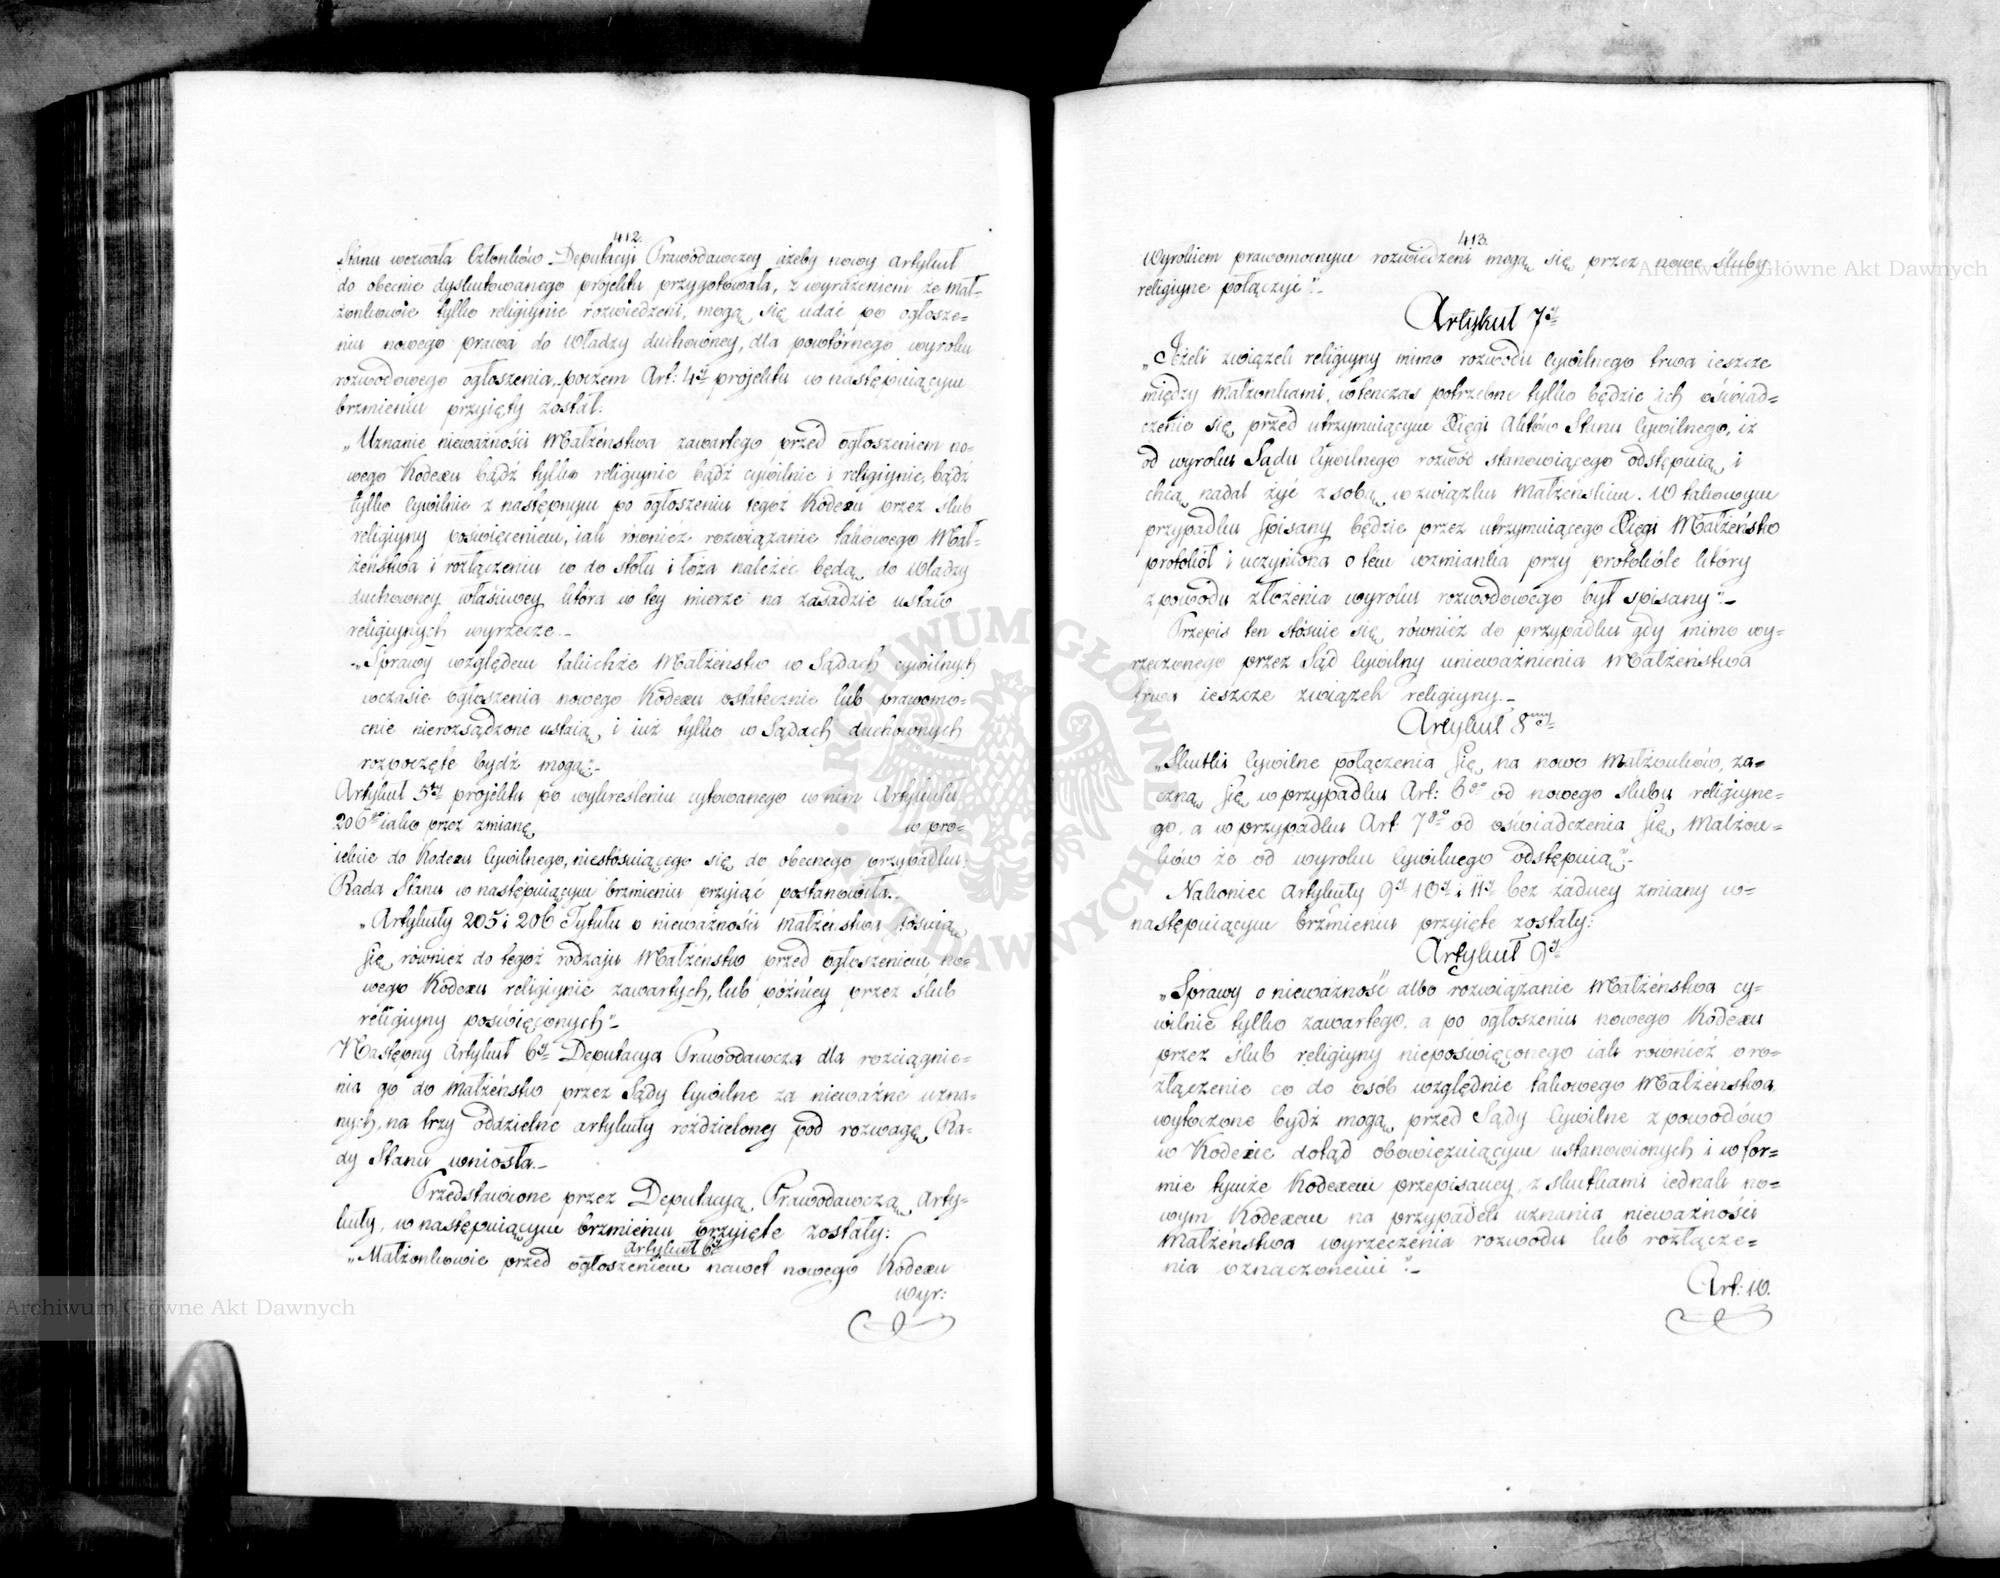 412.
Stanu wezwała Członków Deputacyi Prawodawczey ażeby nowy artykuł
do obecnie dyskutowanego projektu przygotowała, z wyrażeniem że Mał-
żonkowie tylko religiynie rozwiedzeni, mogą się udać po ogłosze-
niu nowego prawa do Władzy duchowney, dla powtórnego wyroku
rozwodowego ogłoszenia, poczem Art: 4ty projektu w następuiącym
brzmieniu przyięty został:
„Uznanie nieważności Małżeństwa zawartego przed ogłoszeniem no-
wego Kodexu bądź tylko religiynie bądź cywilnie i religiynie, bądź
tylko Cywilnie z następnym po ogłoszeniu tegoż Kodexu przez ślub
religiyny poświęceniem, iak również rozwiązanie takowego Mał-
żeństwa i rozłączeniu co do stołu i łoża należeć będą do Władzy
duchowney właściwey która w tey mierze na zasadzie ustaw
religiynych wyrzecze.-
-„Sprawy względem takichże Małżeństw w Sądach cywilnych
w czasie ogłoszenia nowego Kodexu ostatecznie lub prawomo-
cnie nierozsądzone ustaią, i iuż tylko w Sądach duchownych
rozpoczęte bydź mogą”.-
Artykuł 5ty projektu po wykreśleniu cytowanego w nim Artykułu
206go iako przez zmianę w pro-
iekcie do Kodexu Cywilnego, niestósuiącego się do obecnego przypadku;
Rada Stanu w następuiącym brzmieniu przyiąć postanowiła.-
„Artykuły 205 i 206 Tytułu o nieważności Małżeństwa stósuią
się również do tegoż rodzaju Małżeństw przed ogłoszeniem no-
wego Kodexu religiynie zawartych, lub późniey przez ślub
religiyny poświęconych”-
Następny Artykuł 6ty Deputacya Prawodawcza dla rozciągnie-
nia go do Małżeństw przez Sądy Cywilne za nieważne uzna-
nych, na trzy oddzielne artykuły rozdzieloney pod rozwagę Ra-
dy Stanu wniosła.-
Przedstawione przez Deputacyą Prawodawczą Arty-
kuły, w następuiącym brzmieniu przyięte zostały:
Artykuł 6ty
„Małżonkowie przed ogłoszeniem nawet nowego Kodexu
wyr:
413.
Wyrokiem prawomocnym rozwiedzeni mogą się przez nowe śluby
religiyne połączyć”.-
Artykuł 7y
„Jeżeli związek religiyny mimo rozwodu Cywilnego trwa ieszcze
między Małżonkami, wtenczas potrzebne tylko będzie ich oświad-
czenie się przed utrzymuiącym Xięgi Aktów Stanu Cywilnego, iż
od wyroku Sądu Cywilnego rozwód stanowiącego odstępuią, i
chcą nadal żyć z sobą w związku Małżeńskim. W takowym
przypadku spisany będzie przez utrzymuiącego Xięgi Małżeństw
protokół i uczyniona o tem wzmianka przy protokóle który
z powodu złożenia wyroku rozwodowego był spisany”.-
Przepis ten stósuie się również do przypadku gdy mimo wy-
rzeczonego przez Sąd Cywilny unieważnienia Małżeństwa
trwa ieszcze związek religiyny.-
Artykuł 8my
„Skutki Cywilne połączenia się na nowo Małżonków, za-
czną się w przypadku Art: 6go od nowego ślubu religiyne-
go, a w przypadku Art 7go od oświadczenia się Małżon-
ków że od wyroku Cywilnego odstępuią”.-
Nakoniec Artykuły 9y 10y i 11y bez żadney zmiany w-
następuiącym brzmieniu przyięte zostały:
Artykuł 9y
„Sprawy o nieważność albo rozwiązanie Małżeństwa cy-
wilnie tylko zawartego, a po ogłoszeniu nowego Kodexu
przez ślub religiyny niepoświęconego iak również o ro-
złączenie co do osób względnie takowego Małżeństwa
wytoczone bydź mogą przed Sądy Cywilne z powodów
w Kodexie dotąd obowięzuiącym ustanowionych i w for-
mie tymże Kodexem przepisaney, z skutkami iednak no-
wym Kodexem na przypadek uznania nieważności
Małżeństwa wyrzeczenia rozwodu lub rozłącze-
nia oznaczonemi”.-
Art: 10.
Archiwum Główne Akt Dawnych
Archiwum Główne Akt Dawnych
ARCHIWUM GŁÓWNE AKT DAWNYCH